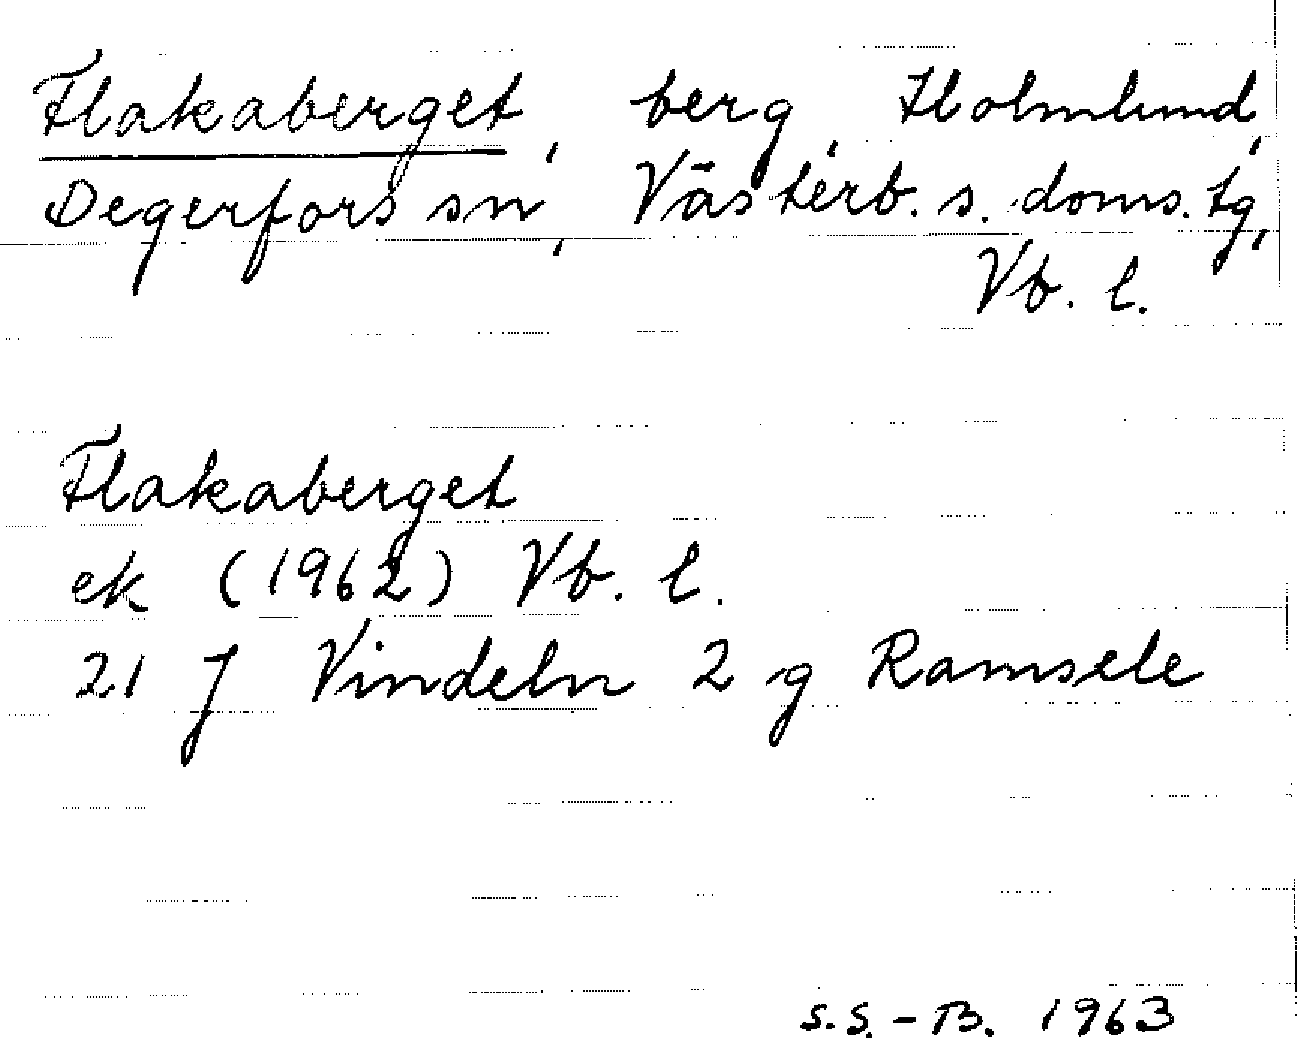 Flakaberget, berg, Holmlund,
Degerfors sn, Västerb. s. doms. tg,
Vb. l.
Flakaberget
ek (1962) Vb. l.
21 J Vindeln 2 g Ramsele
S.S.-B. 1963